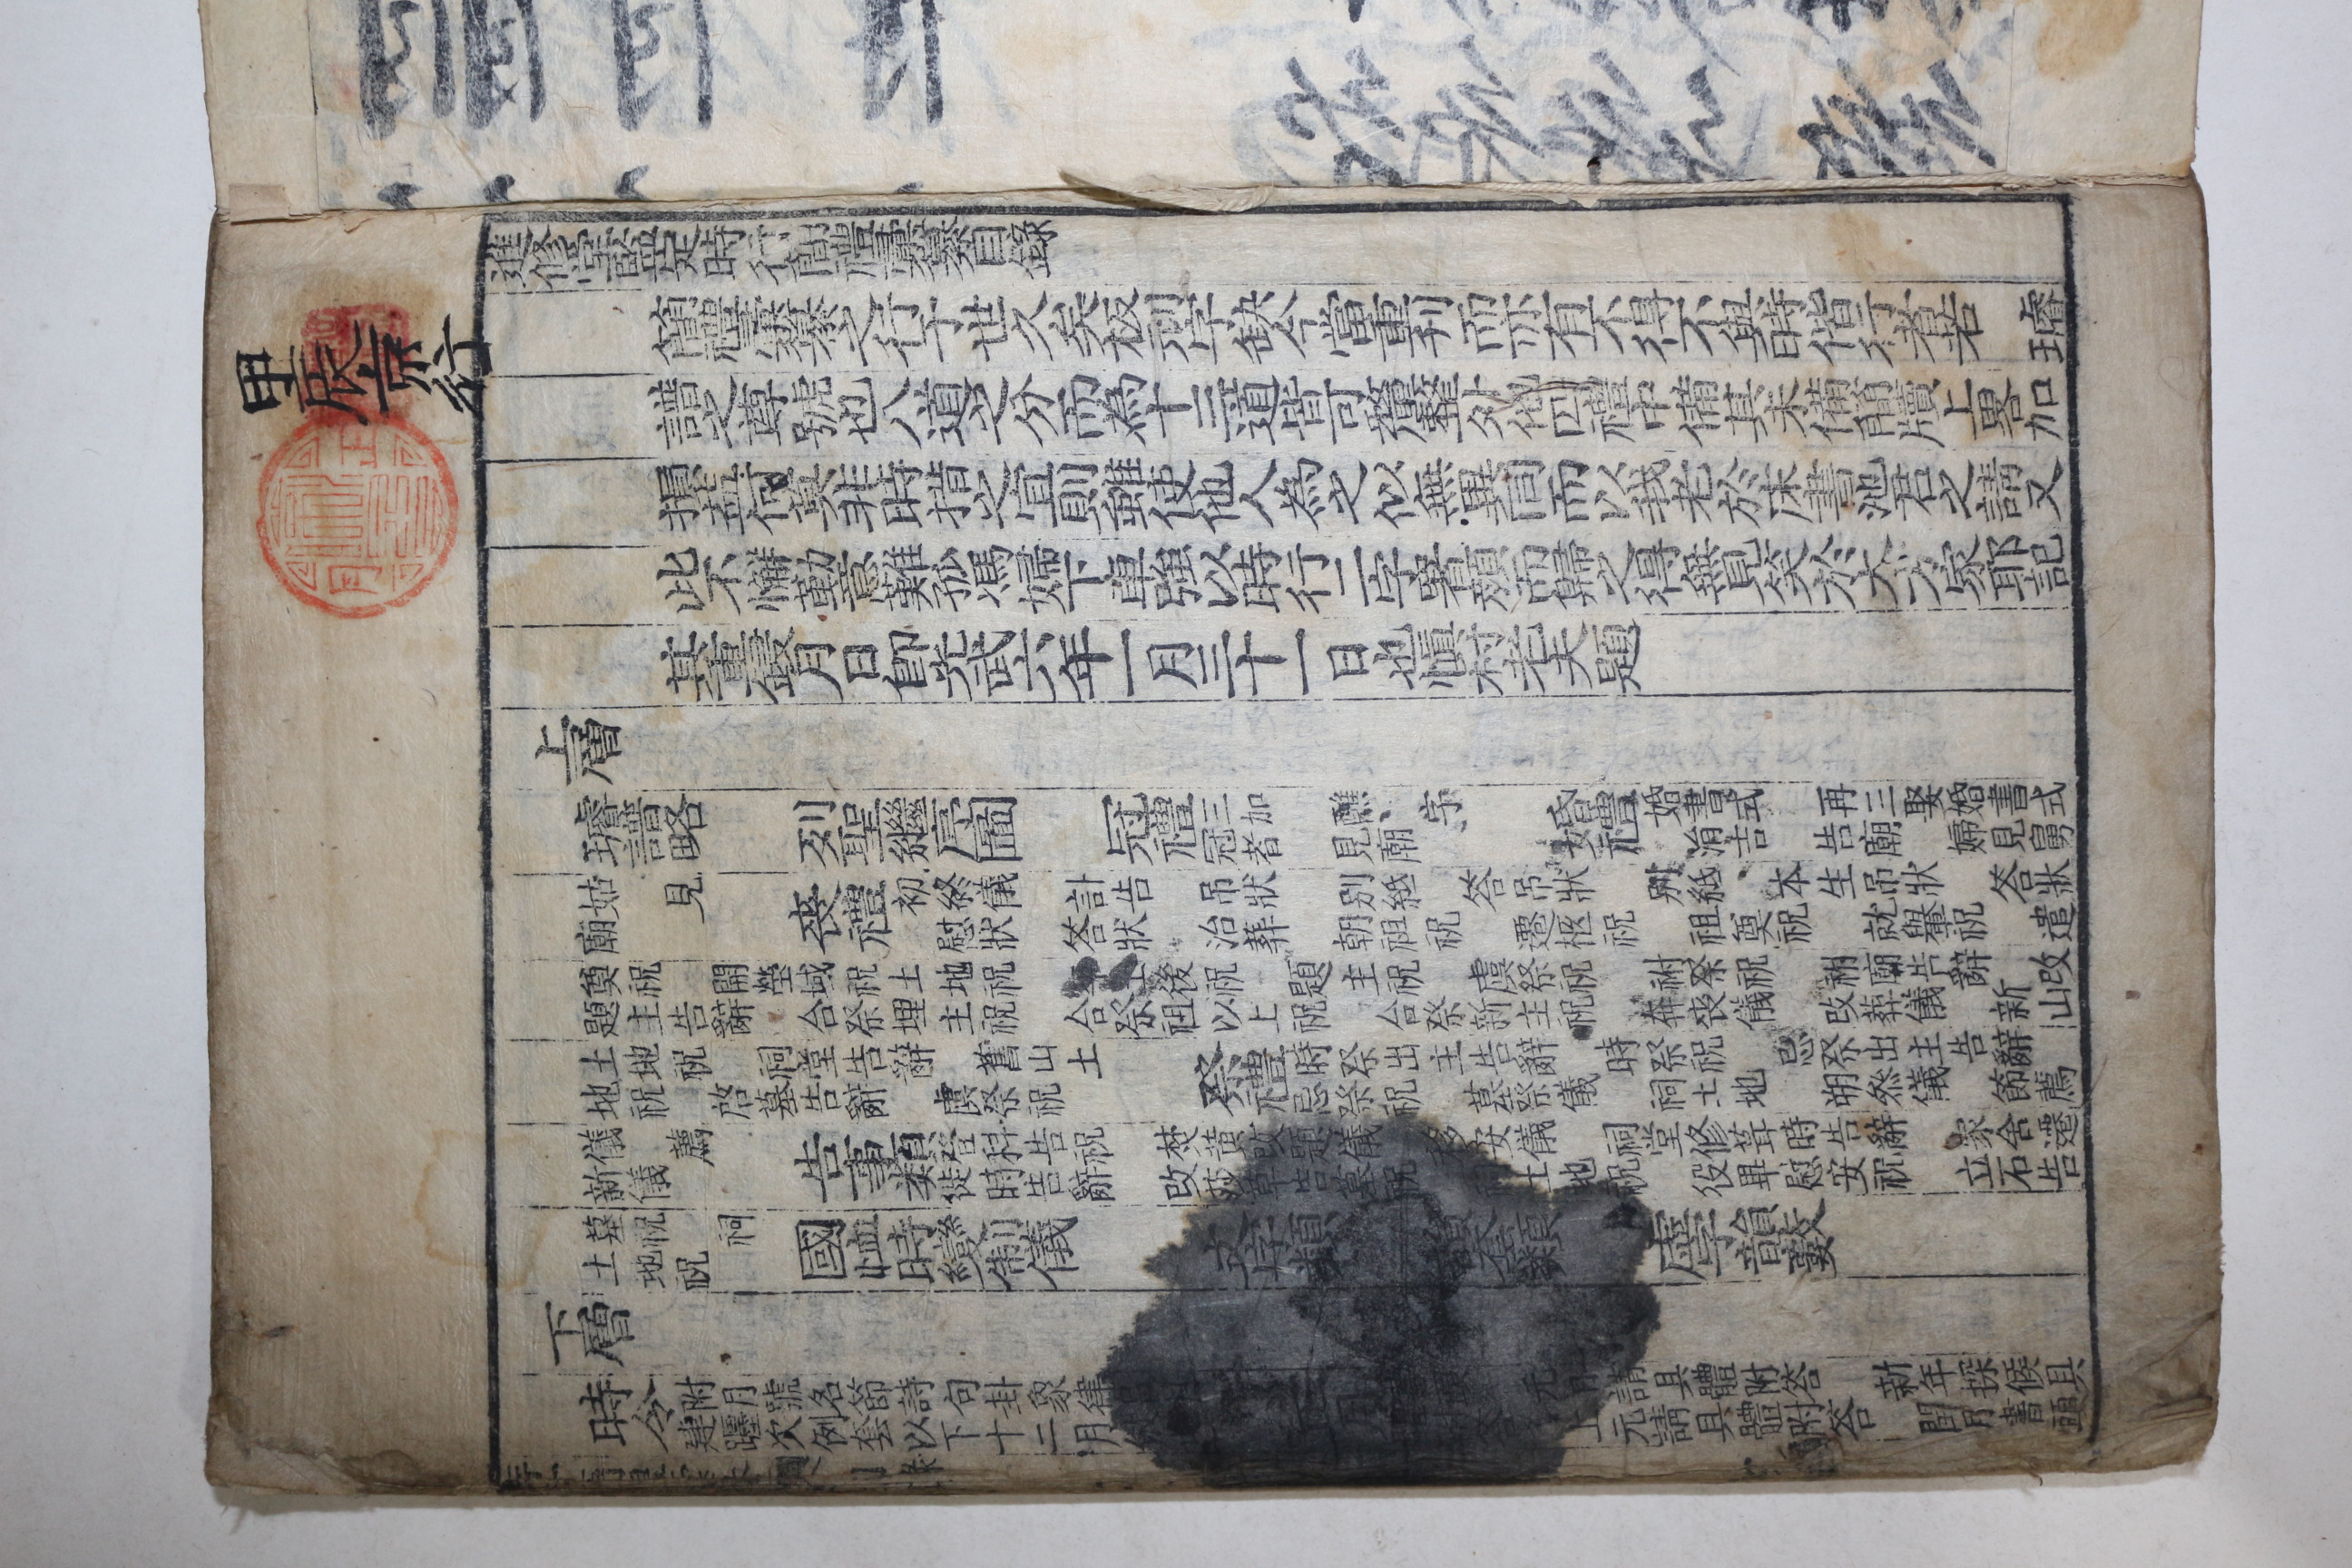 甲辰京行
進修堂監定時行簡禮彙纂目錄
簡禮彙纂之行于世久矣板刓字缺今當重刊而亦有不得不與時偕行者若 璿
譜之尊號也八道之分而為十三道皆可釐整外他四禮中備其未備簡牘上畧加
損益何莫非時措之宜則雖使他人為之似無異同而以我老於床書池君之請又
此不懈勤意難孤馮婦下車強以時行二字署顏而歸之得無見笑於大方家耶記
其重鋟月日卽光武六年一月三十一日也愼村老夫題
上層
璿譜略 列聖繼序圖 冠禮 三加 醮 字 冠者 見廟 婚禮 婚書式 再三娶婚書式 涓吉 告廟 婦見舅
姑 見廟 喪禮 初終儀 訃告 吊狀 別紙 答吊狀 別紙 本生吊狀 答狀 慰狀 答狀 治葬 朝祖祝 遷柩祝 祖奠祝 就轝祝 遣
奠祝 開塋域祝土地祝 後祝 題主祝 虞祭祝 祔祭祝 祔廟告辭 改題主告辭 合祭埋主祝 合祭祖以上祝 合祭新主祝 奔喪儀 改葬儀 新山
土地祝 祠堂告辭 舊山土地祝 啓墓告辭 虞祭祝 祭禮 時祭出主告辭 時祭祝 忌祭出主告辭 忌祭祝 墓祭儀 祠土地 朔叅儀 節薦
儀 薦新儀 告事類 登科告祝 焚黃改題儀 移安儀 祠堂修葺時告辭 家舍遷徙時告辭 改莎草告墓祝 土地祝 役畢慰安祝 立石告
墓祝 祠土地祝 國恤時變制儀 文字類 套類 虛字韻藪
下層
時令 附月號名節詩句卦象律 元 請具體附答 新年探候具 建躔次例套以下十二月 上元請具體附答 閏月書頭